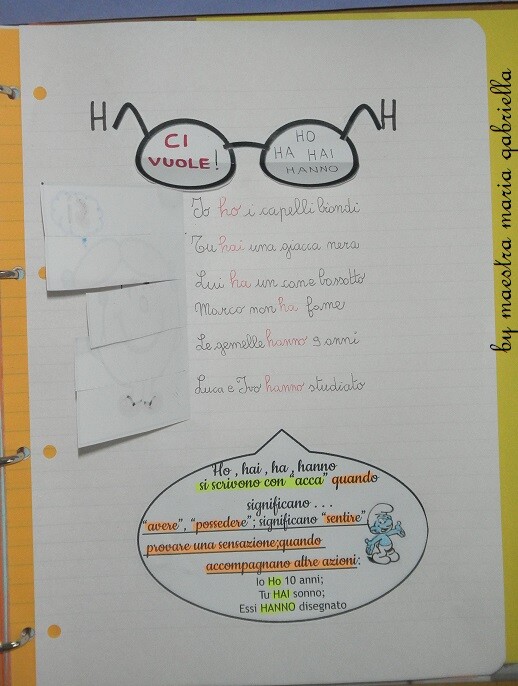 H H
CI
VUOLE!
HO
HA HAI
HANNO
Io ho i capelli biondi
Tu hai una giacca nera
Lui ha un cane bassotto
Marco non ha fame
Le gemelle hanno 9 anni
Luca e Ivo hanno studiato
Ho , hai , ha , hanno
si scrivono con "acca" quando
significano . . .
"avere" , "possedere"; significano "sentire"
provare una sensazione;quando
accompagnano altre azioni:
Io Ho 10 anni;
Tu HAI sonno;
Essi HANNO disegnato
by maestra maria gabriella